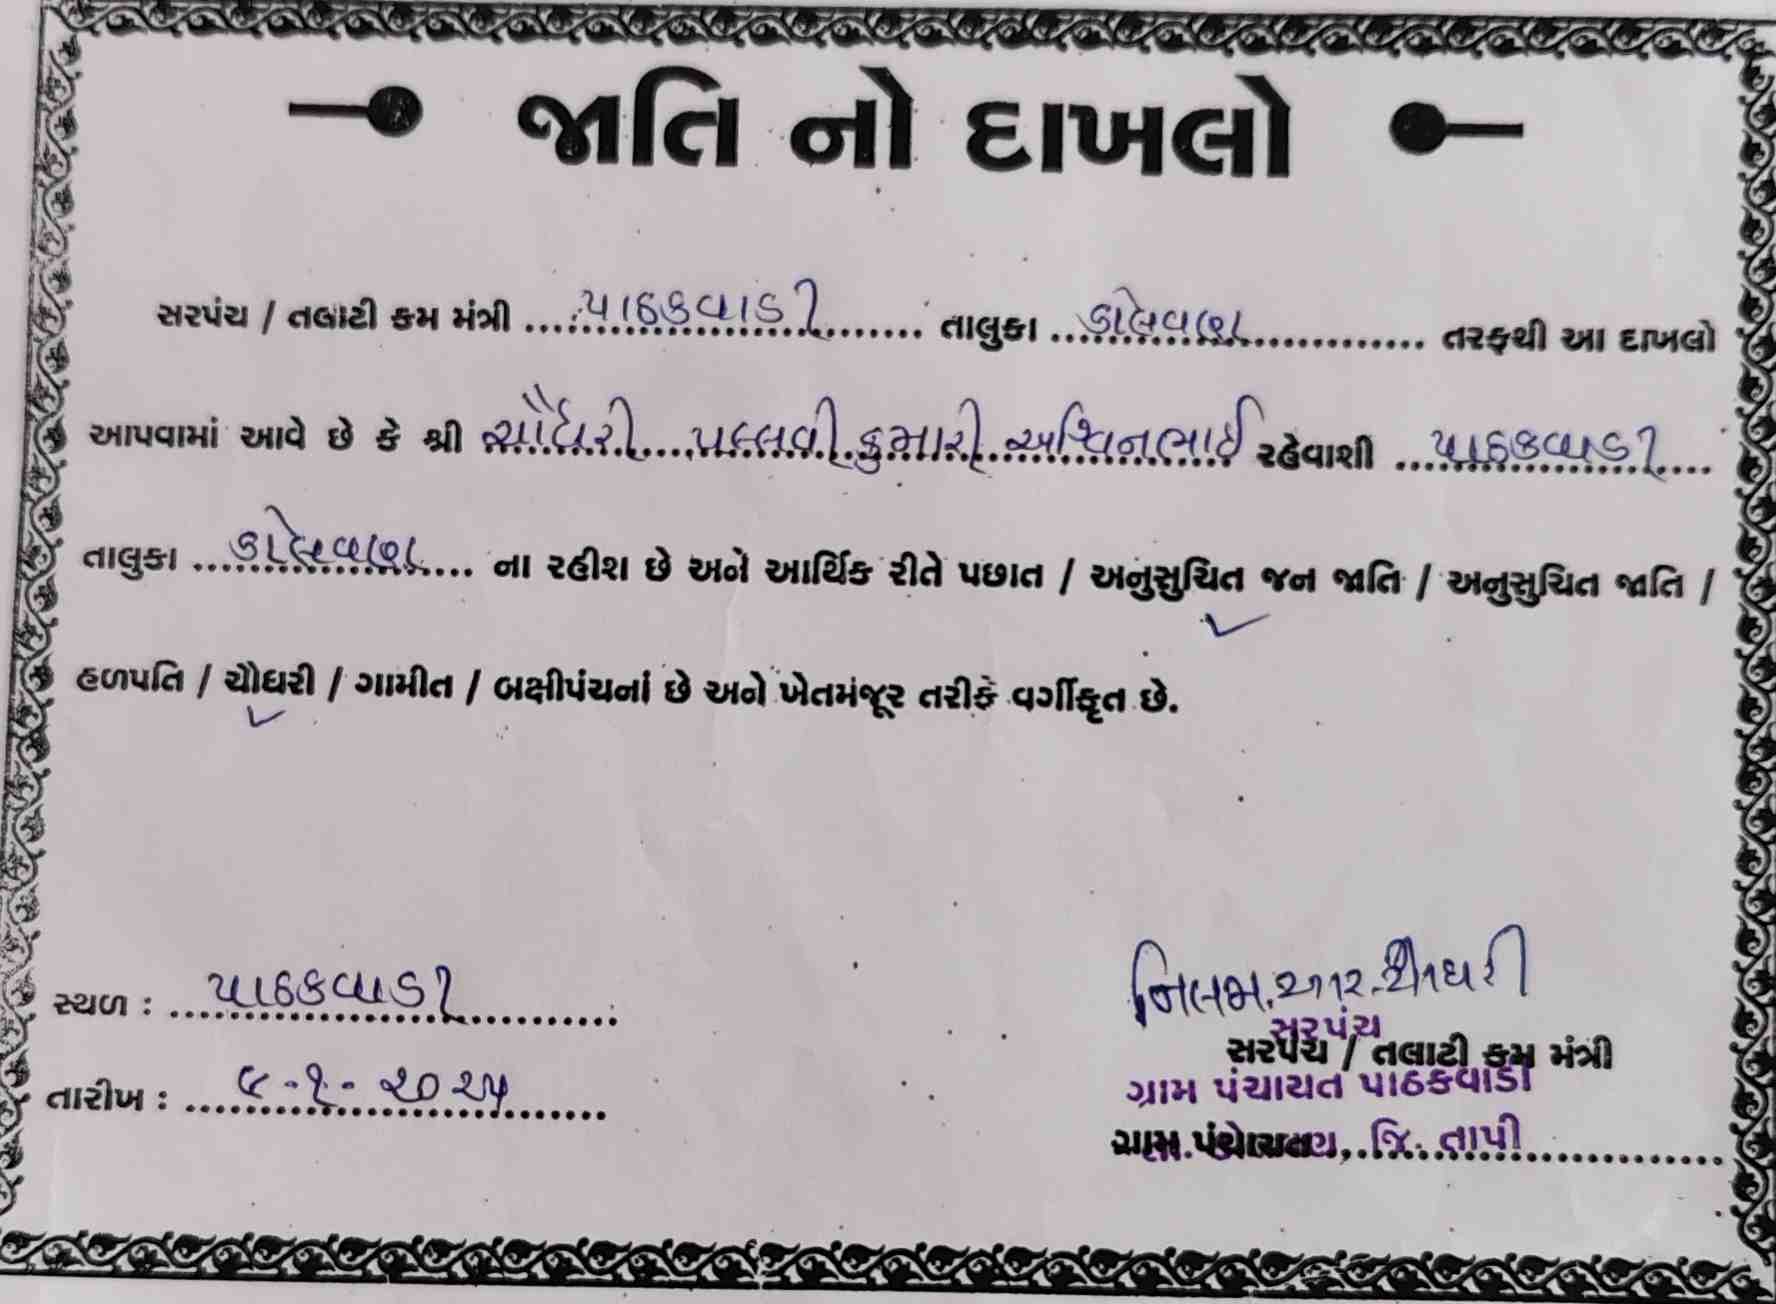 જાતિ નો દાખલો
સરપંચ / તલાટી કમ મંત્રી પાઠકવાડી તાલુકા ડોલવણ તરફથી આ દાખલો
આપવામાં આવે છે કે શ્રી ચૌધરી પલ્લવી કુમારી અશ્વિનભાઈ રહેવાશી પાઠકવાડી
તાલુકા ડોલવણ ના રહીશ છે અને આર્થિક રીતે પછાત / અનુસુચિત જન જાતિ / અનુસુચિત જાતિ /
હળપતિ / ચૌધરી / ગામીત / બક્ષીપંચનાં છે અને ખેતમંજૂર તરીકે વર્ગીકૃત છે.
સ્થળ : પાઠકવાડી
તારીખ : ૯-૧-૨૦૨૫
નિલમ. આર. ચૌધરી
સરપંચ
સરપંચ / તલાટી કમ મંત્રી
ગ્રામ પંચાયત પાઠકવાડી
ગ્રામ પંચાયત
જિ. તાપી